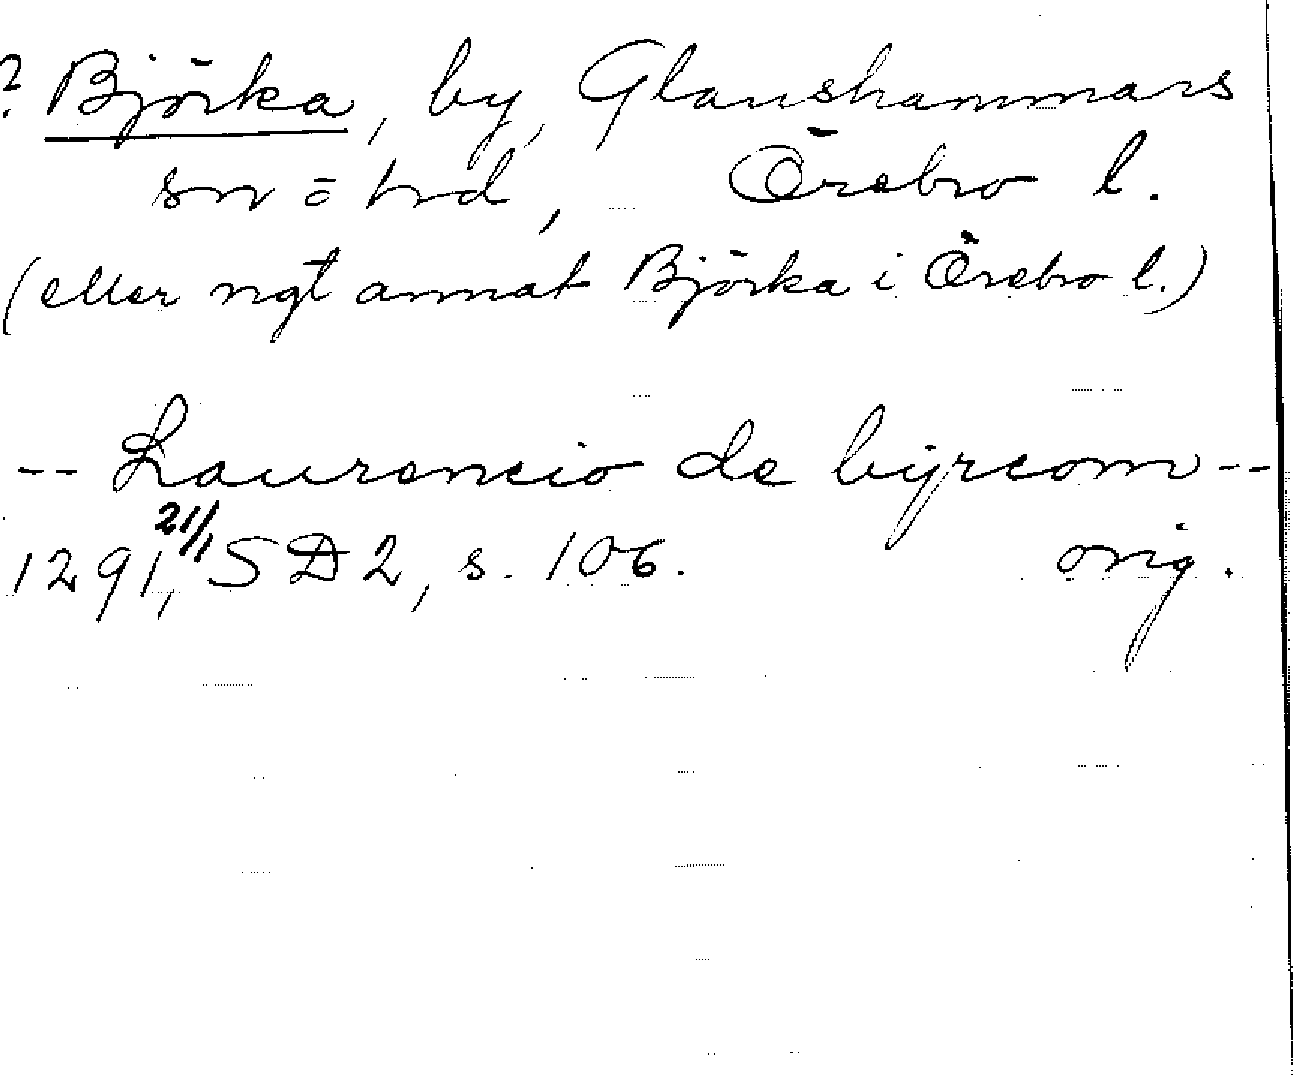 ? Björka, by, Glanshammars
sn o hd, Örebro l.
(eller ngt annat Björka i Örebro l.)
-- Laurencio de byrcom --
1291, 21/1 SD 2, s. 106. orig.